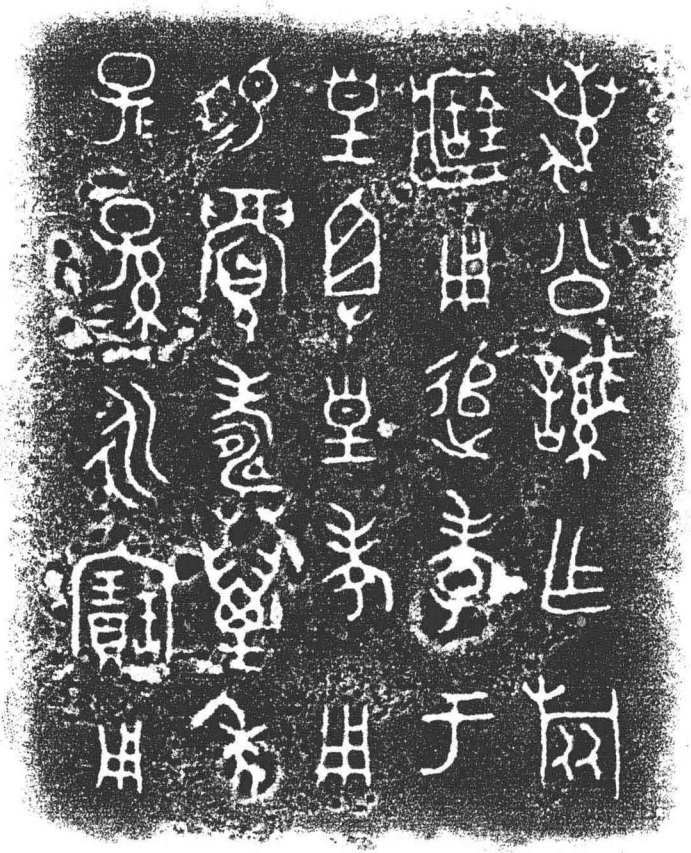 蠚公諴乍旅
匿用追孝于
皇且皇考用
易眉壽萬年
子孫永寶用